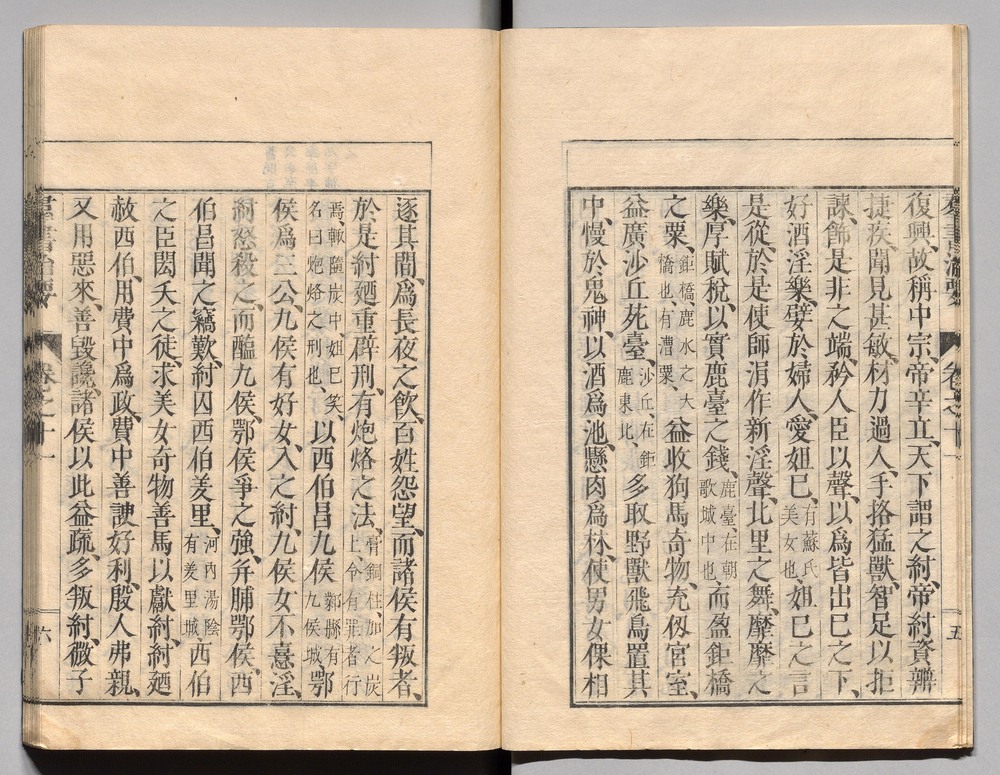 復興、故稱中宗、帝辛立、天下謂之紂、帝紂資辯
捷疾、聞見甚敏、材力過人、手挌猛獸、智足以拒
諫、飾是非之端、矜人臣以聲、以爲皆出己之下、
好酒淫樂、嬖於婦人、愛妲己、有蘇氏美女也、妲己之言
是從、於是使師涓作新淫聲、北里之舞、靡靡之
樂、厚賦稅、以實鹿臺之錢、鹿臺、在朝歌城中也、而盈鉅橋
之粟、鉅橋、鹿水之大橋也、有漕粟、益收狗馬奇物、充仭宮室、
益廣沙丘苑臺、沙丘、在鉅鹿東北、多取野獸飛鳥置其
中、慢於鬼神、以酒爲池、懸肉爲林、使男女倮相
逐其間、爲長夜之飮、百姓怨望、而諸侯有叛者、
於是紂廼重辟刑、有炮烙之法、膏銅柱加之炭上、令有罪者行
焉、輒隨炭中、妲己笑、名曰炮烙之刑也、以西伯昌九侯鄴縣有九侯城、鄂
侯、爲三公、九侯有好女、入之紂、九侯女不憙淫、
紂怒殺之、而醢九侯、鄂侯爭之強、幷脯鄂侯、西
伯昌聞之竊歎、紂囚西伯羑里、河內湯陰有羑里城、西伯
之臣閎夭之徒、求美女奇物善馬以獻紂、紂廼
赦西伯、用費中爲政、費中善諛好利、殷人弗親、
又用惡來、善毀讒、諸侯以此益疏、多叛紂、微子
卷之十一
五
六